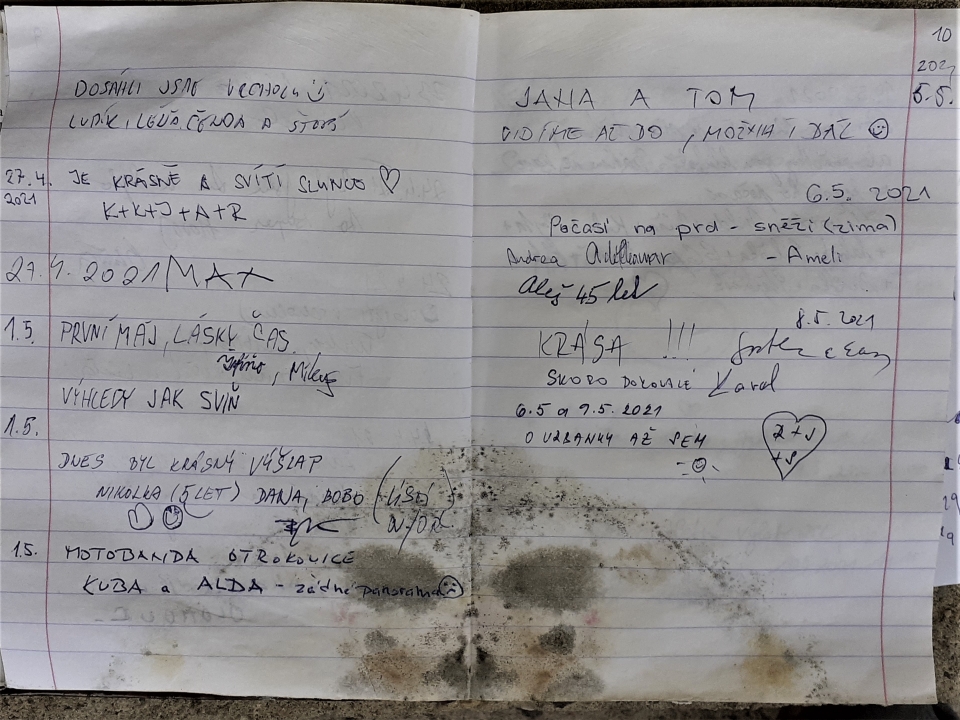 DOSÁHLI JSME VRCHOLU
LUDĚK, A
27.4. JE KRÁSNĚ A SVÍTÍ SLUNCE
2021
K+K+J+A+R
27.4.2021 MAX
1.5. PRVNÍ MÁJ, LÁSKY ČAS
VÝHLEDY JAK SVIŇ
1.5.
DNES BYL KRÁSNÝ VÝŠLAP
NIKOLKA (5 LET) DANA, BOBO
1.5. MOTOBANDA OTROKOVICE
KUBA a ALDA - žádné panorama
10
2021
5.5.
JANA A TOM
VIDÍME AŽ DO , MOŽNÁ I DÁL
6.5. 2021
Počasí na prd - sněží (zima)
Andrea
- Ameli
Aleš 45 let
8.5.2021
KRÁSA !!!
SKORO Karol
6.5 a 9.5.2021
AŽ SEM